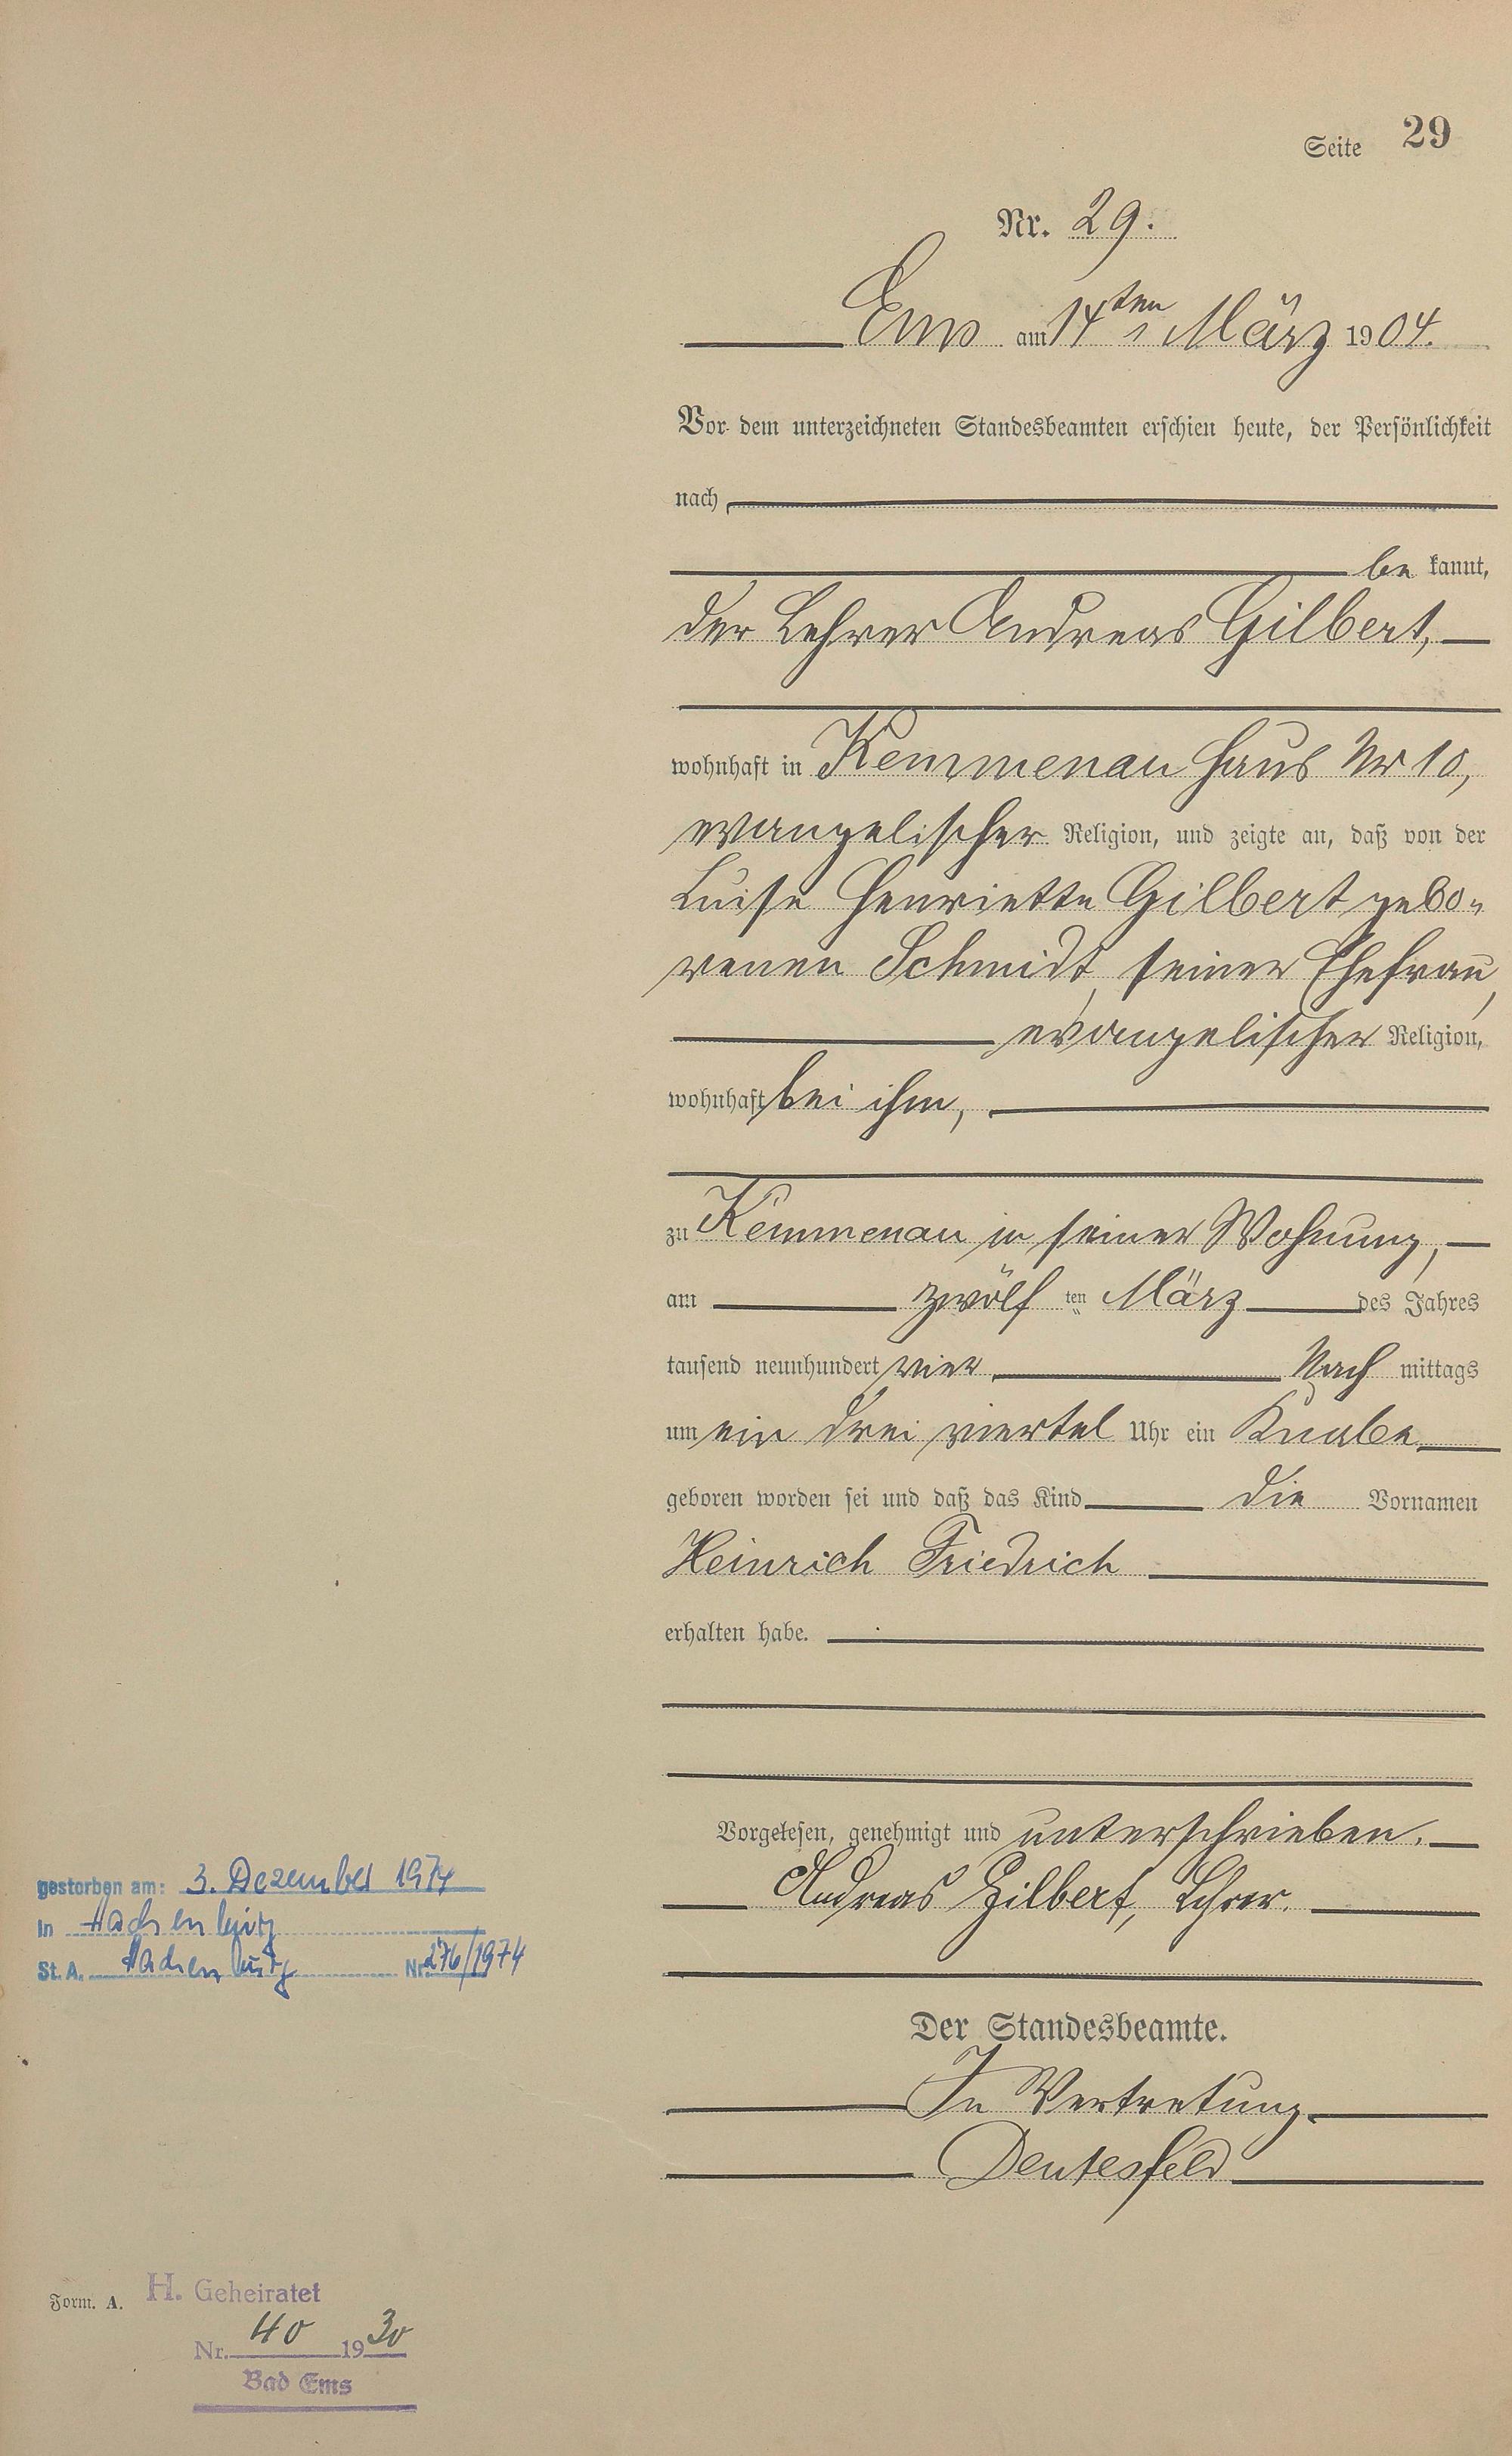 Seite 29
Nr. 29.
Ems am 14ten März 1904.
Vor dem unterzeichneten Standesbeamten erschien heute, der Persönlichkeit
nach
be kannt,
der Lehrer Andreas Gilbert,
wohnhaft in Kemmenau Haus Nr 10,
evangelischer Religion, und zeigte an, daß von der
Luise Henriette Gilbert gebo-
renen Schmidt, seiner Ehefrau,
evangelischer Religion,
wohnhaft bei ihm,
zu Kemmenau in seiner Wohnung,
am zwölf ten März des Jahres
tausend neunhundert vier Nach mittags
um ein drei viertel Uhr ein Knabe
geboren worden sei und daß das Kind die Vornamen
Heinrich Friedrich
erhalten habe.
Vorgelesen, genehmigt und unterschrieben.
Andreas Gilbert, Lehrer.
Der Standesbeamte.
In Vertretung.
Deutesfeld
gestorben am: 3. Dezember 1974
in Hachenburg
St. A. Hachenburg Nr. 276/1974
Form. A. H. Geheiratet
Nr. 40 1930
Bad Ems